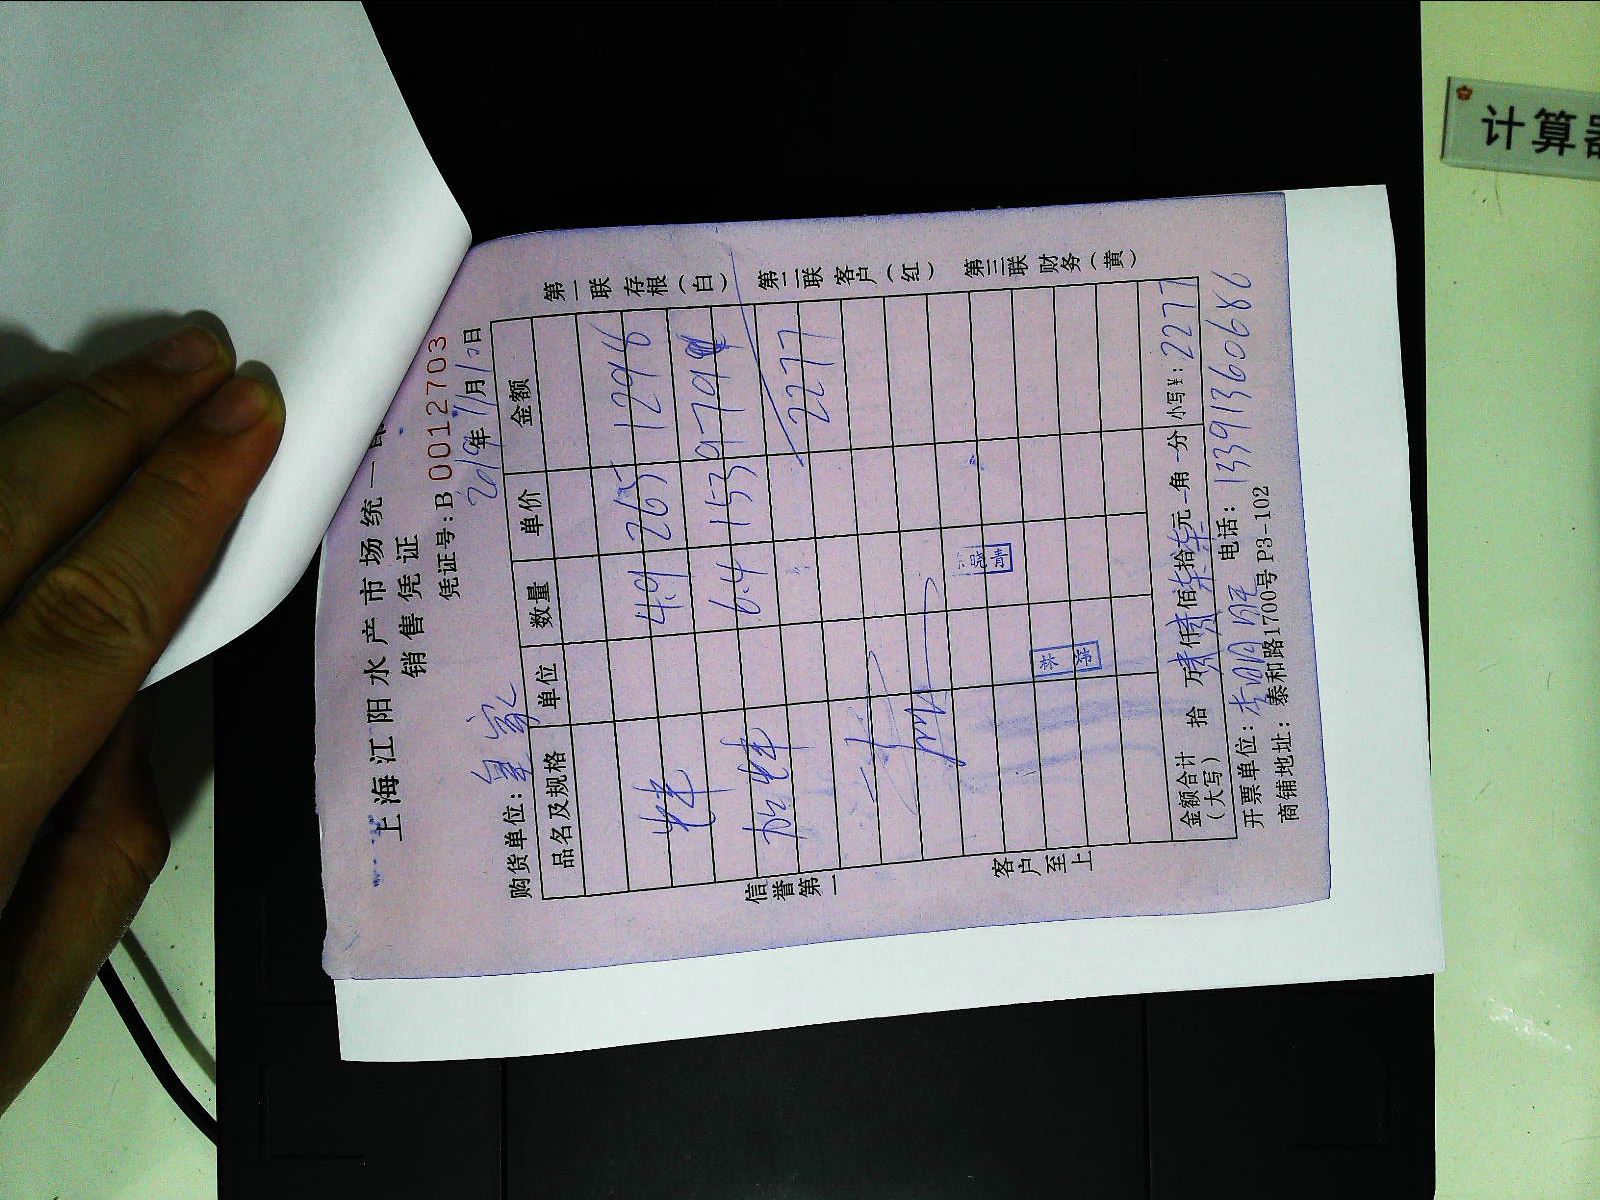 计算器
上海江阳水产市场统一
销售凭证
凭证号:B 0012703
购货单位: 皇家
2019年11月12日
品名及规格 单位 数量 单价 金额
4.9 265 1298
6.4 153 979
2277
晓青
林
金额合计(大写) 拾 万 仟 佰柒拾柒元 角 分 小写¥: 2277
开票单位: 李明旺 电话: 13391360686
商铺地址: 泰和路1700号P3-102
第一联 存根(白) 第二联 客户(红) 第三联 财务(黄)
信誉第一 客户至上